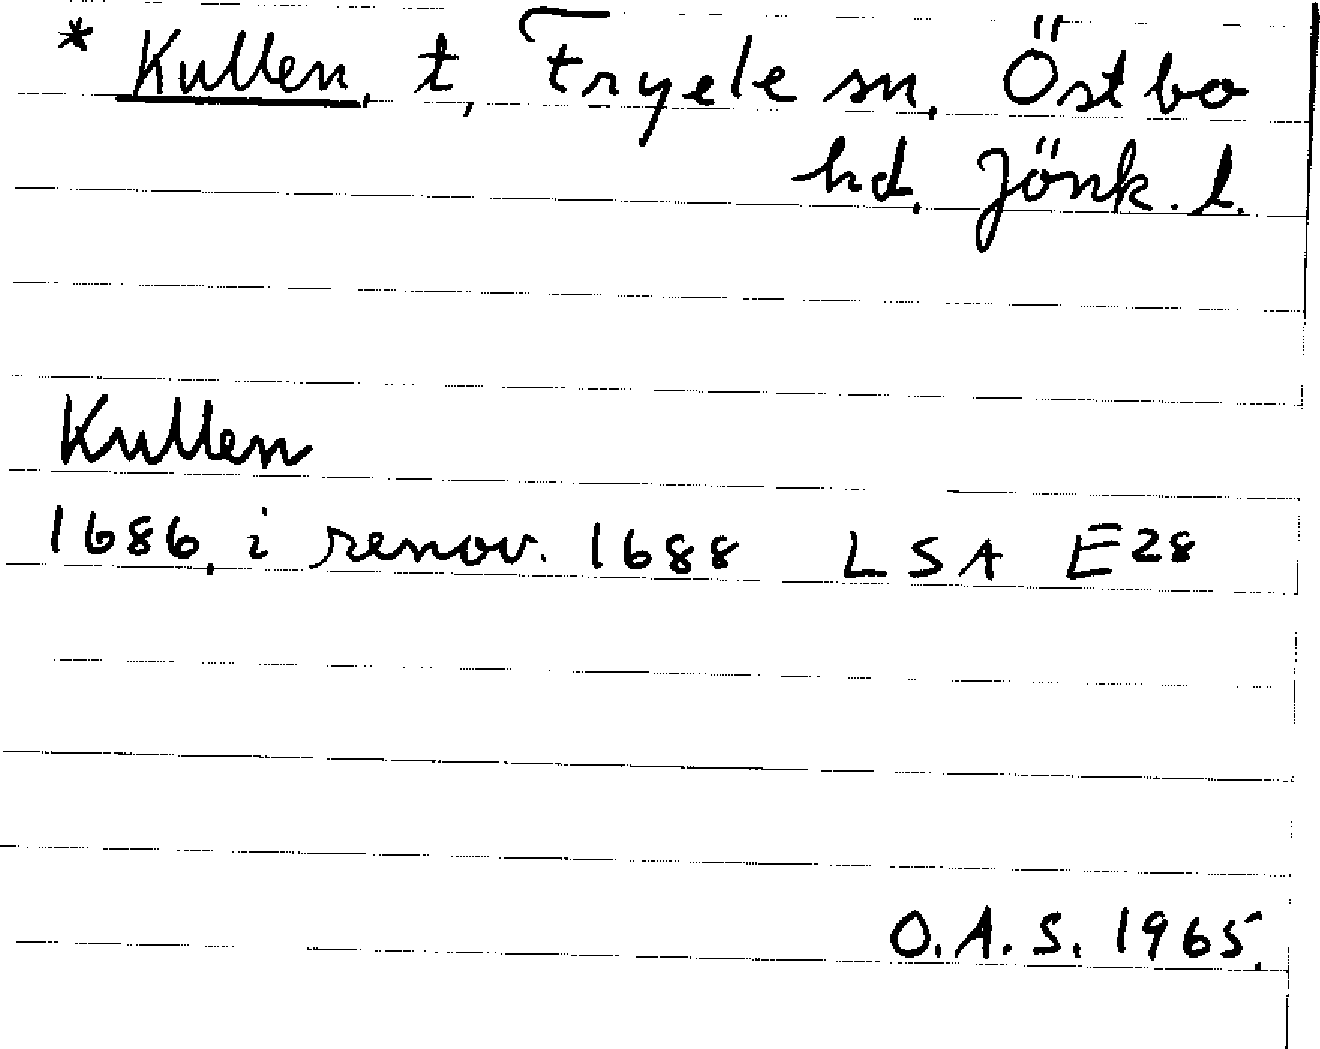 * Kullen, t, Fryele sn, Östbo
hd, Jönk. l.
Kullen
1686, i renov. 1688 LSA E28
O.A.S. 1965.